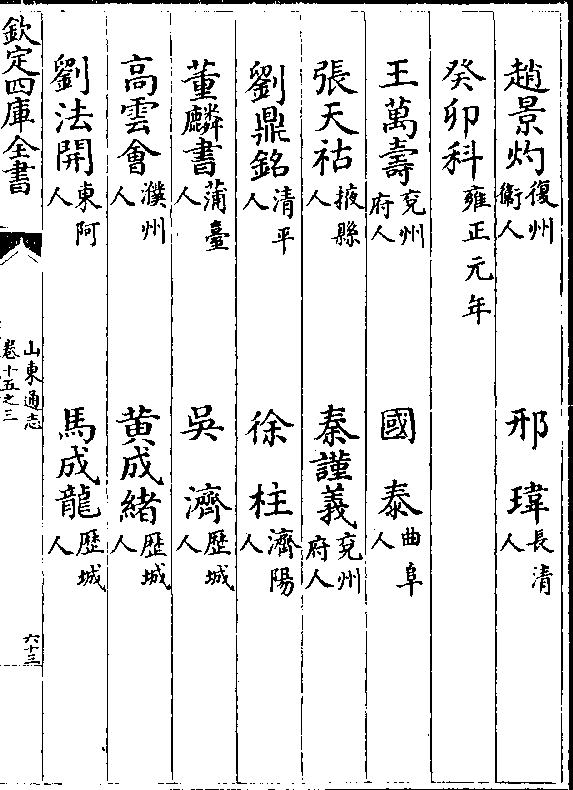 趙景灼復州衛人 邢瑋長清人
癸卯科雍正元年
王萬壽兖州府人 國泰曲阜人
張天祜掖縣人 秦謹義兖州府人
劉鼎銘清平人 徐柱濟陽人
董麟書蒲臺人 吳濟歷城人
高雲會濮州人 黄成緒歷城人
劉法開東阿人 馬成龍歷城人
欽定四庫全書 山東通志 卷十五之三 六十三